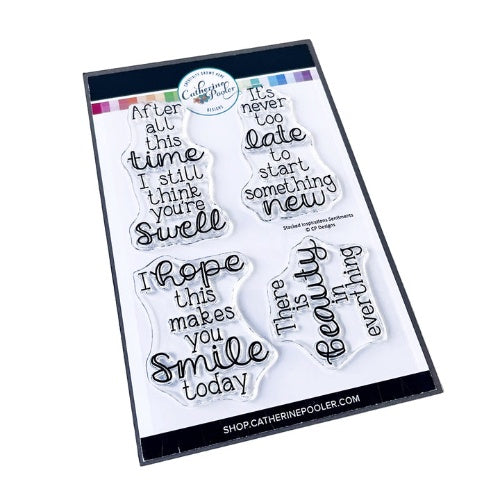 CREATIVITY GROWS HERE
Catherine
Pooler
DESIGNS
After
all
this
time
I still
think
you're
swell
It's
never
too
late
to
start
something
new
Stacked Inspirations Sentiments
© CP Designs
I hope
this
makes
you
smile
today
There
is
beauty
in
everything
SHOP.CATHERINEPOOLER.COM